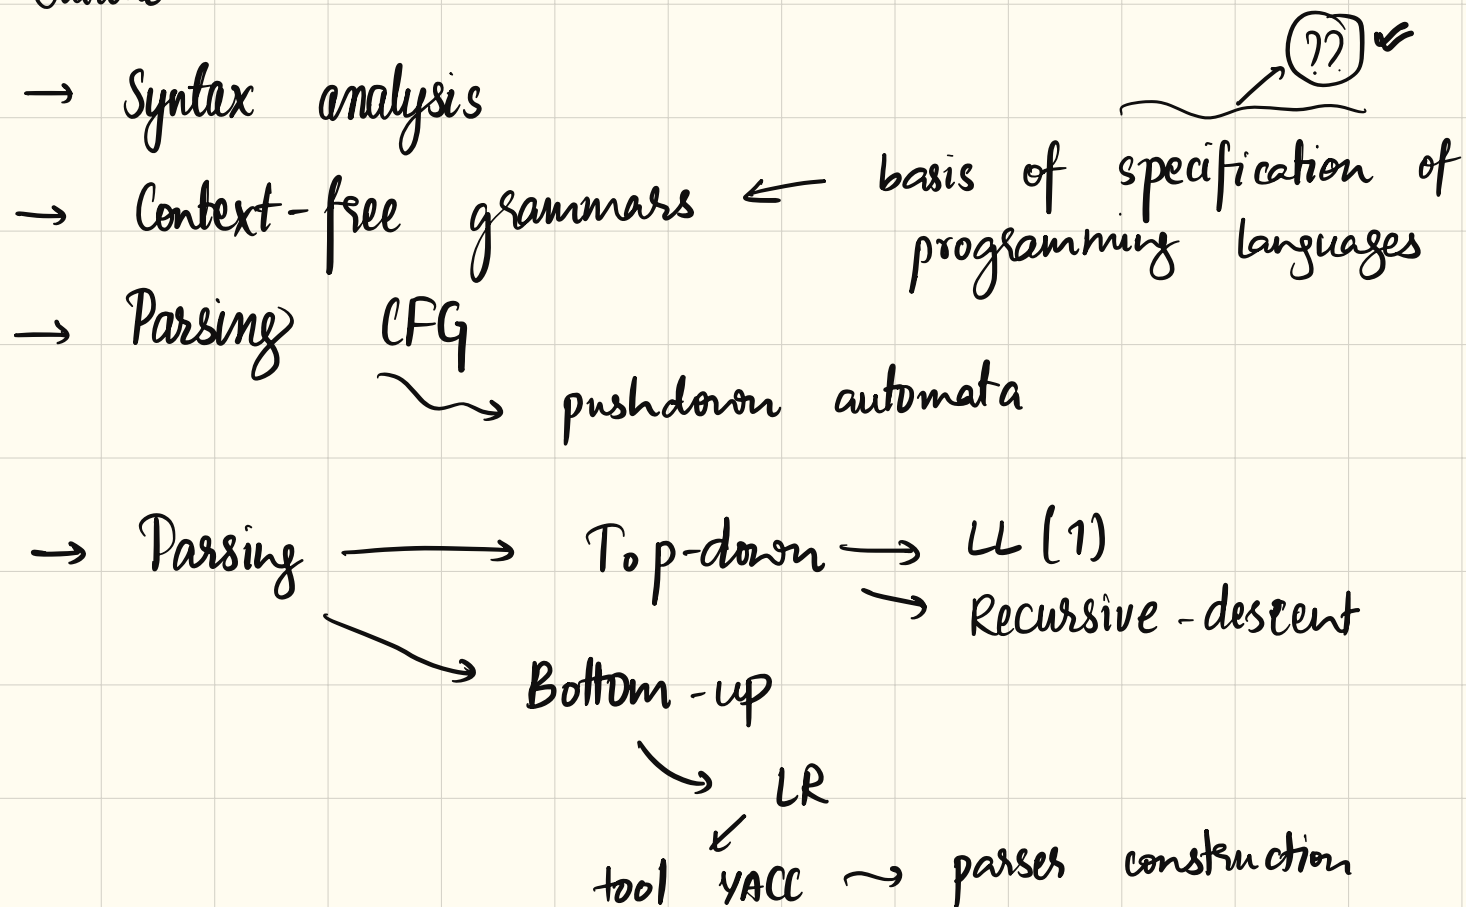 ??
→ Syntax analysis
→ Context-free grammars ← basis of specification of
programming languages
→ Parsing CFG
→ pushdown automata
→ Parsing → Top-down → LL (1)
→ Recursive-descent
→ Bottom-up
→ LR
tool YACC → parses construction